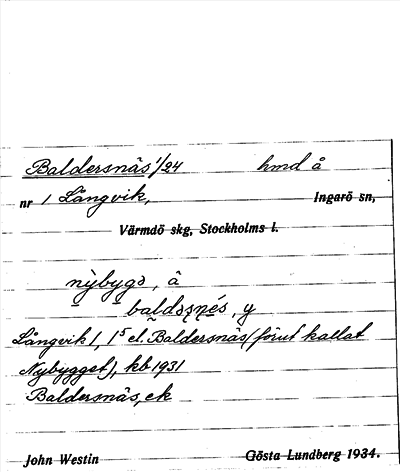 Baldersnäs 1/24 hmd å
nr 1 Långvik, Ingarö sn,
Värmdö skg, Stockholms l.
nỳbygə, â
baldəʂɳés, y
Långvik 1, 1⁵ el. Baldersnäs (förut kallat
Nybygget), kb 1931
Baldersnäs, ek
John Westin Gösta Lundberg 1934.